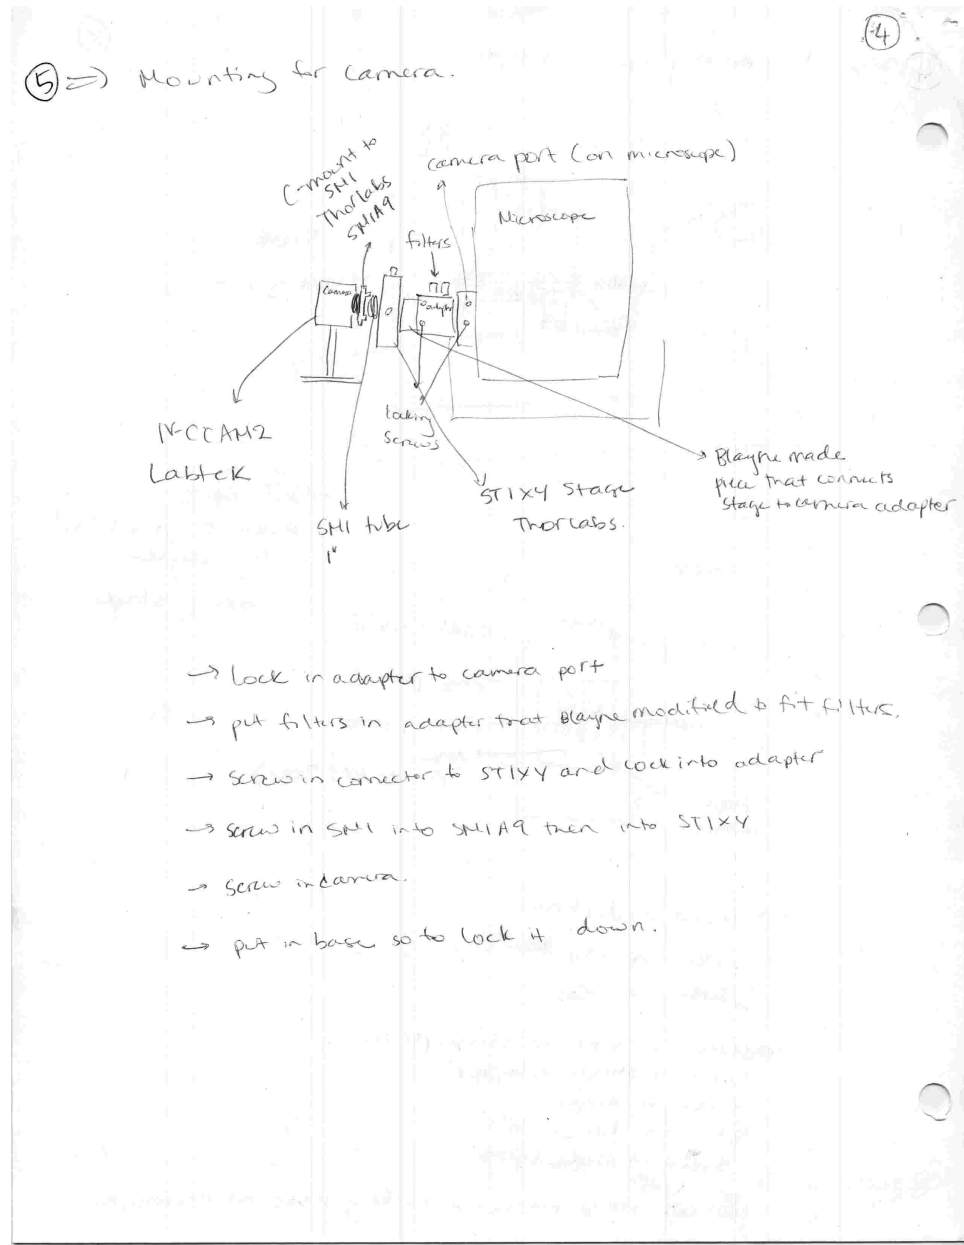 4
5 => Mounting for camera.
C-mount to
SM1
Thorlabs
SM1A9
camera port (on microscope)
Microscope
filters
Camera
adapter
locking
screws
IV-CCAM2
Labtek
SM1 tube
1"
ST1XY Stage
Thorlabs.
Blayne made
piece that connects
stage to camera adapter
→ Lock in adapter to camera port
→ put filters in adapter that Blayne modified to fit filters.
→ screw in connector to ST1XY and lock into adapter
→ screw in SM1 into SM1A9 then into ST1XY
→ screw in camera.
→ put in base so to lock it down.